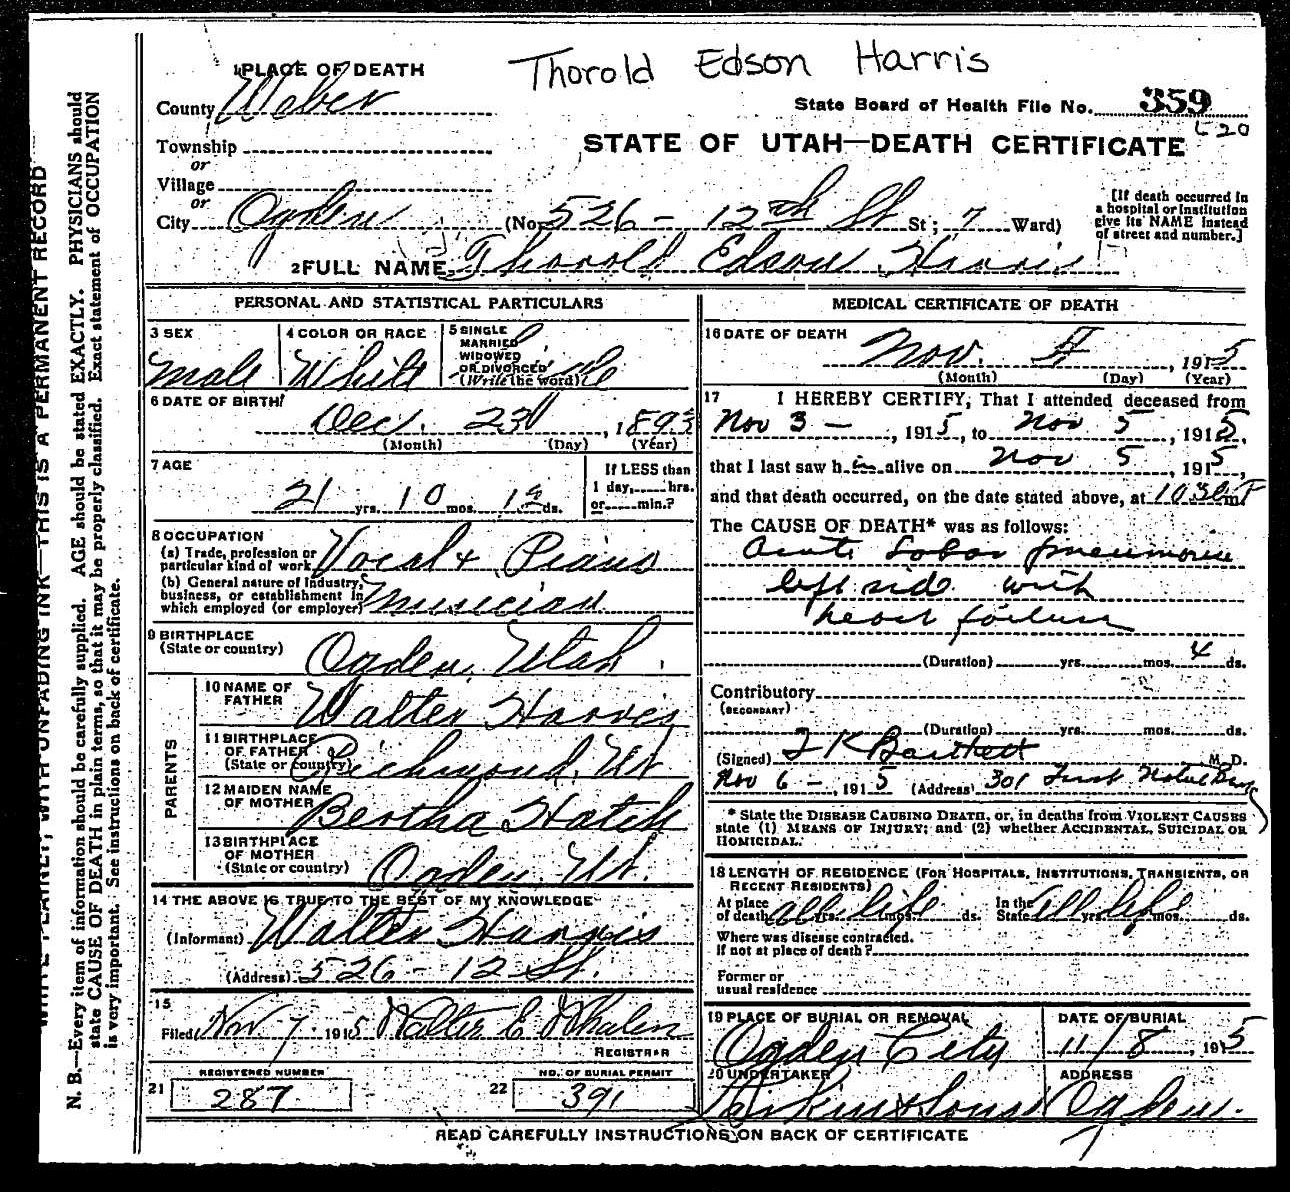 Thorold Edson Harris
1 PLACE OF DEATH
County Weber
State Board of Health File No. 359
C20
Township
or
Village
or
STATE OF UTAH—DEATH CERTIFICATE
City Ogden (No 526 - 12th St St; 7 Ward)
[If death occurred in a hospital or institution give its NAME instead of street and number.]
2 FULL NAME Thorold Edson Harris
PERSONAL AND STATISTICAL PARTICULARS
3 SEX Male
4 COLOR OR RACE White
5 SINGLE MARRIED WIDOWED OR DIVORCED (Write the word) Single
6 DATE OF BIRTH Dec. 23d, 1893
(Month) (Day) (Year)
7 AGE
21 yrs. 10 mos. ds.
If LESS than 1 day, hrs. or min.?
8 OCCUPATION
(a) Trade, profession or particular kind of work Vocal & Piano
(b) General nature of Industry, business, or establishment in which employed (or employer) Musician
9 BIRTHPLACE
(State or country) Ogden, Utah.
PARENTS
10 NAME OF FATHER Walter Harris
11 BIRTHPLACE OF FATHER (State or country) Richmond, Ut
12 MAIDEN NAME OF MOTHER Bertha Hatch
13 BIRTHPLACE OF MOTHER (State or country) Ogden, Ut.
14 THE ABOVE IS TRUE TO THE BEST OF MY KNOWLEDGE
(Informant) Walter Harris
(Address) 526 - 12 St.
15
Filed Nov 7 1915 Walter E Whalen
REGISTRAR
21 REGISTERED NUMBER 287
22 NO. OF BURIAL PERMIT 391
MEDICAL CERTIFICATE OF DEATH
16 DATE OF DEATH Nov. 5, 1915
(Month) (Day) (Year)
17 I HEREBY CERTIFY, That I attended deceased from
Nov 3 -, 1915, to Nov 5, 1915,
that I last saw him alive on Nov 5, 1915,
and that death occurred, on the date stated above, at 1030 P m
The CAUSE OF DEATH* was as follows:
Acute Lobar pneumonia
left side with
heart failure
(Duration) yrs. mos. 4 ds.
Contributory
(SECONDARY)
(Duration) yrs. mos. ds.
(Signed) Bartlett M. D.
Nov 6 -, 1915 (Address) 301 First
* State the DISEASE CAUSING DEATH, or, in deaths from VIOLENT CAUSES
state (1) MEANS OF INJURY; and (2) whether ACCIDENTAL, SUICIDAL OR
HOMICIDAL.
18 LENGTH OF RESIDENCE (FOR HOSPITALS, INSTITUTIONS, TRANSIENTS, OR
RECENT RESIDENTS)
At place of death all life yrs. mos. ds. In the State all life yrs. mos. ds.
Where was disease contracted.
If not at place of death?
Former or
usual residence
19 PLACE OF BURIAL OR REMOVAL Ogden City
DATE OF BURIAL 11/8, 1915
20 UNDERTAKER Larkin & Sons
ADDRESS Ogden.
READ CAREFULLY INSTRUCTIONS ON BACK OF CERTIFICATE
WRITE PLAINLY, WITH UNFADING INK—THIS IS A PERMANENT RECORD
N. B.—Every item of information should be carefully supplied. AGE should be stated EXACTLY. PHYSICIANS should
state CAUSE OF DEATH in plain terms, so that it may be properly classified. Exact statement of OCCUPATION
is very important. See instructions on back of certificate.